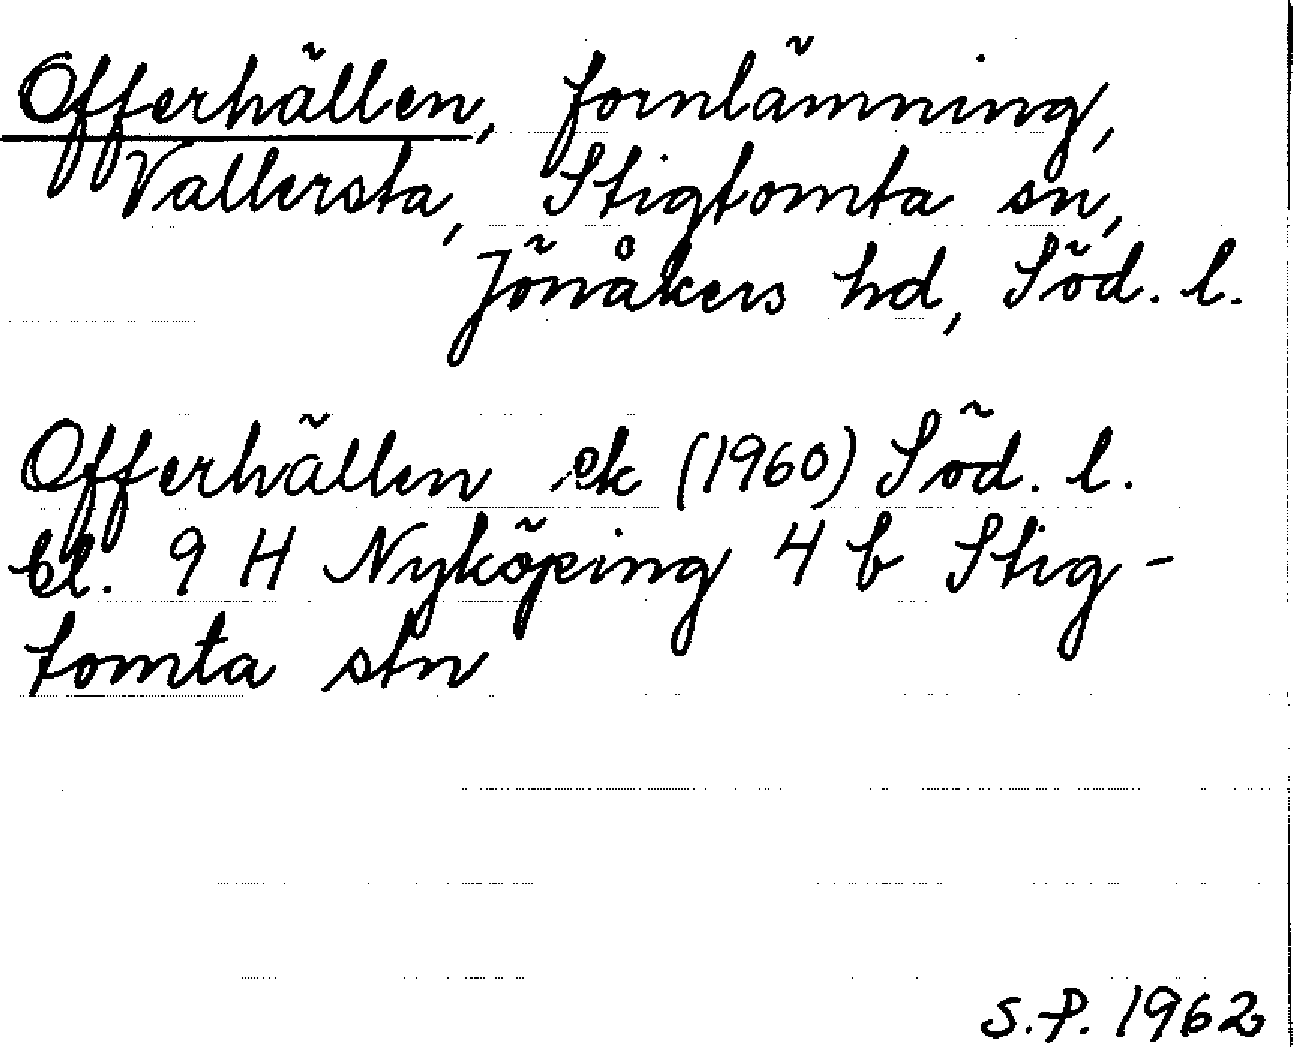 Offerhällen, fornlämning,
Vallersta, Stigtomta sn,
Jönåkers hd, Söd. l.
Offerhällen ek (1960) Söd. l.
bl. 9 H Nyköping 4 b Stig-
tomta stn
S.P. 1962